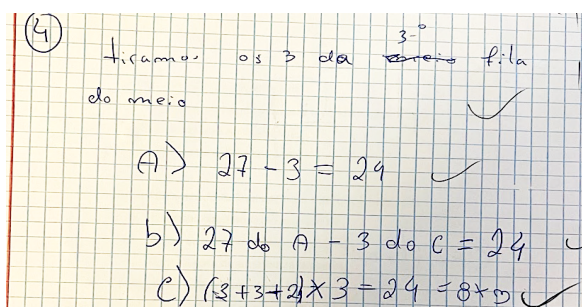 4
3º
tiramos os 3 da fila
do meio
A) 27 - 3 = 24
b) 27 do A - 3 do C = 24
c) (3+3+2) x 3 = 24 = 8x3